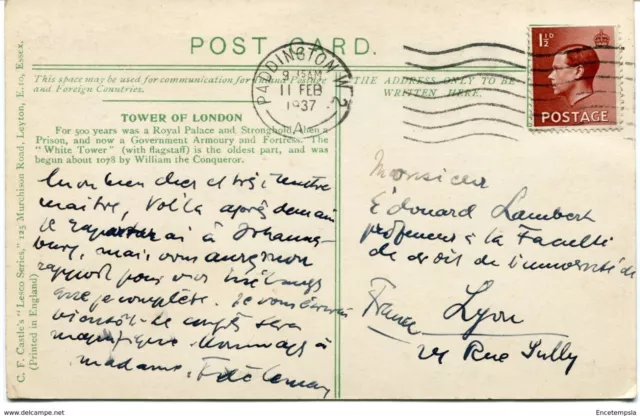 POST CARD.
This space may be used for communication for Inland Postage
and Foreign Countries.
THE ADDRESS ONLY TO BE
WRITTEN HERE.
PADDINGTON. W.2
9. 15AM
11 FEB
1937
A
1½D
POSTAGE
TOWER OF LONDON
For 500 years was a Royal Palace and Stronghold, then a
Prison, and now a Government Armoury and Fortress. The
"White Tower" (with flagstaff) is the oldest part, and was
begun about 1078 by William the Conqueror.
Mon bien cher et très illustre
maître, Voilà après demain
je à
mais vous aurez mon
rapport pour vos
que je complète. Je vous
bientôt. Le sera
magnifique. Hommages à
madame.
Monsieur
Édouard Lambert
professeur à la Faculté
de droit de l'université de
Lyon
France
Rue Sully
C. F. Castle's "Lesco Series," 125 Murchison Road, Leyton, E.10, Essex.
(Printed in England)
www.delcampe.net
Encetempsla